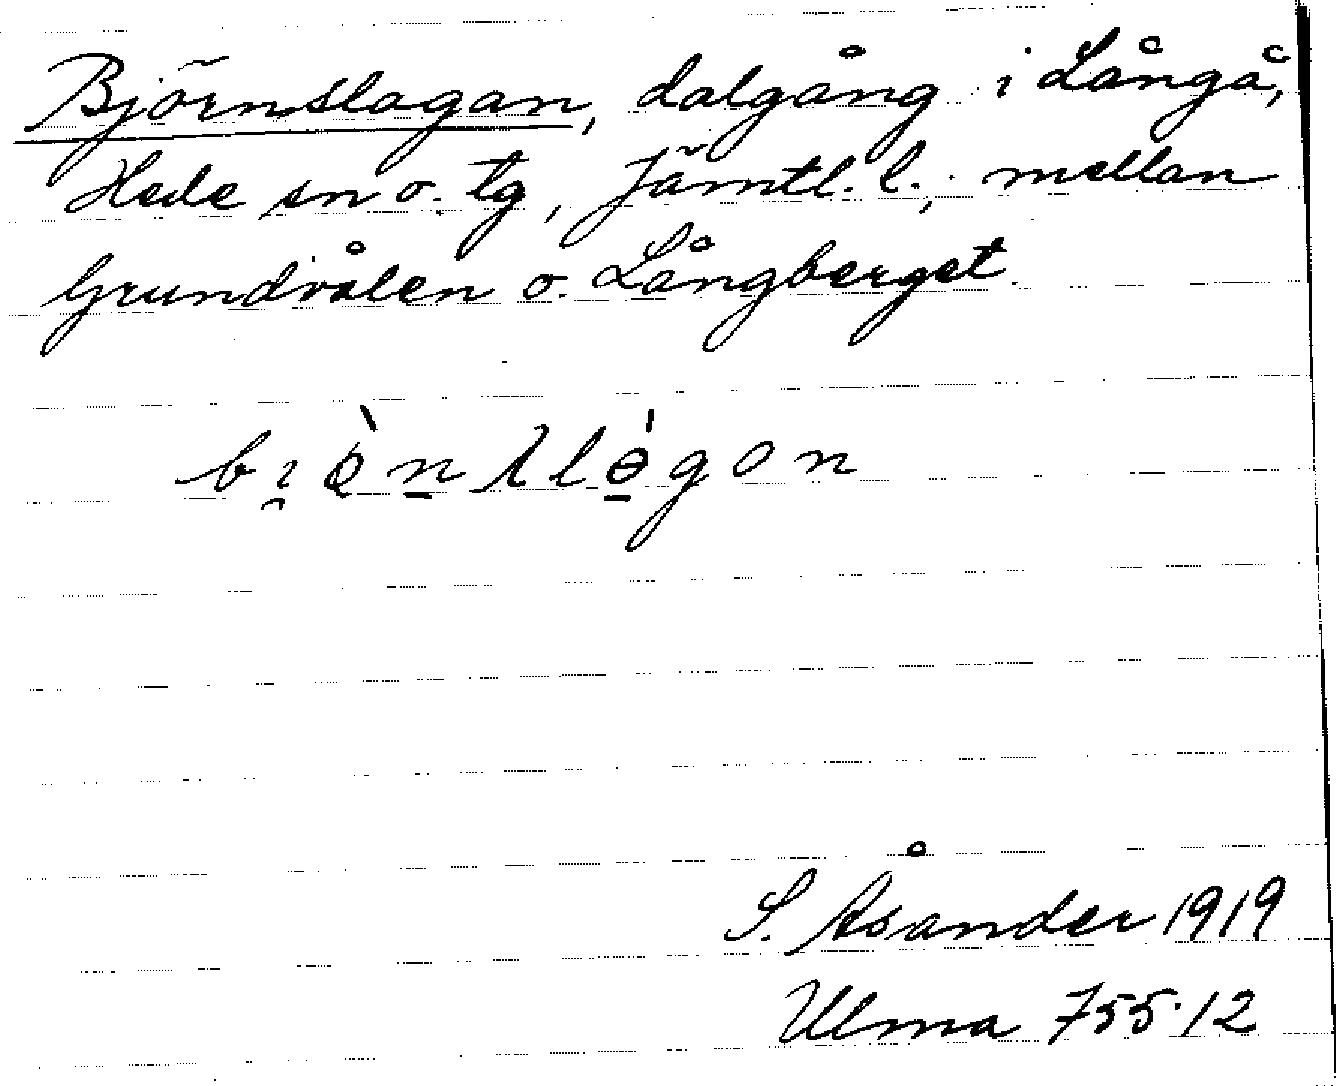 Björnslagan, dalgång i Långå,
Hede sn o. tg, Jämtl. l., mellan
Grundvålen o. Långberget.
S. Åsander 1919
Ulma 755:12